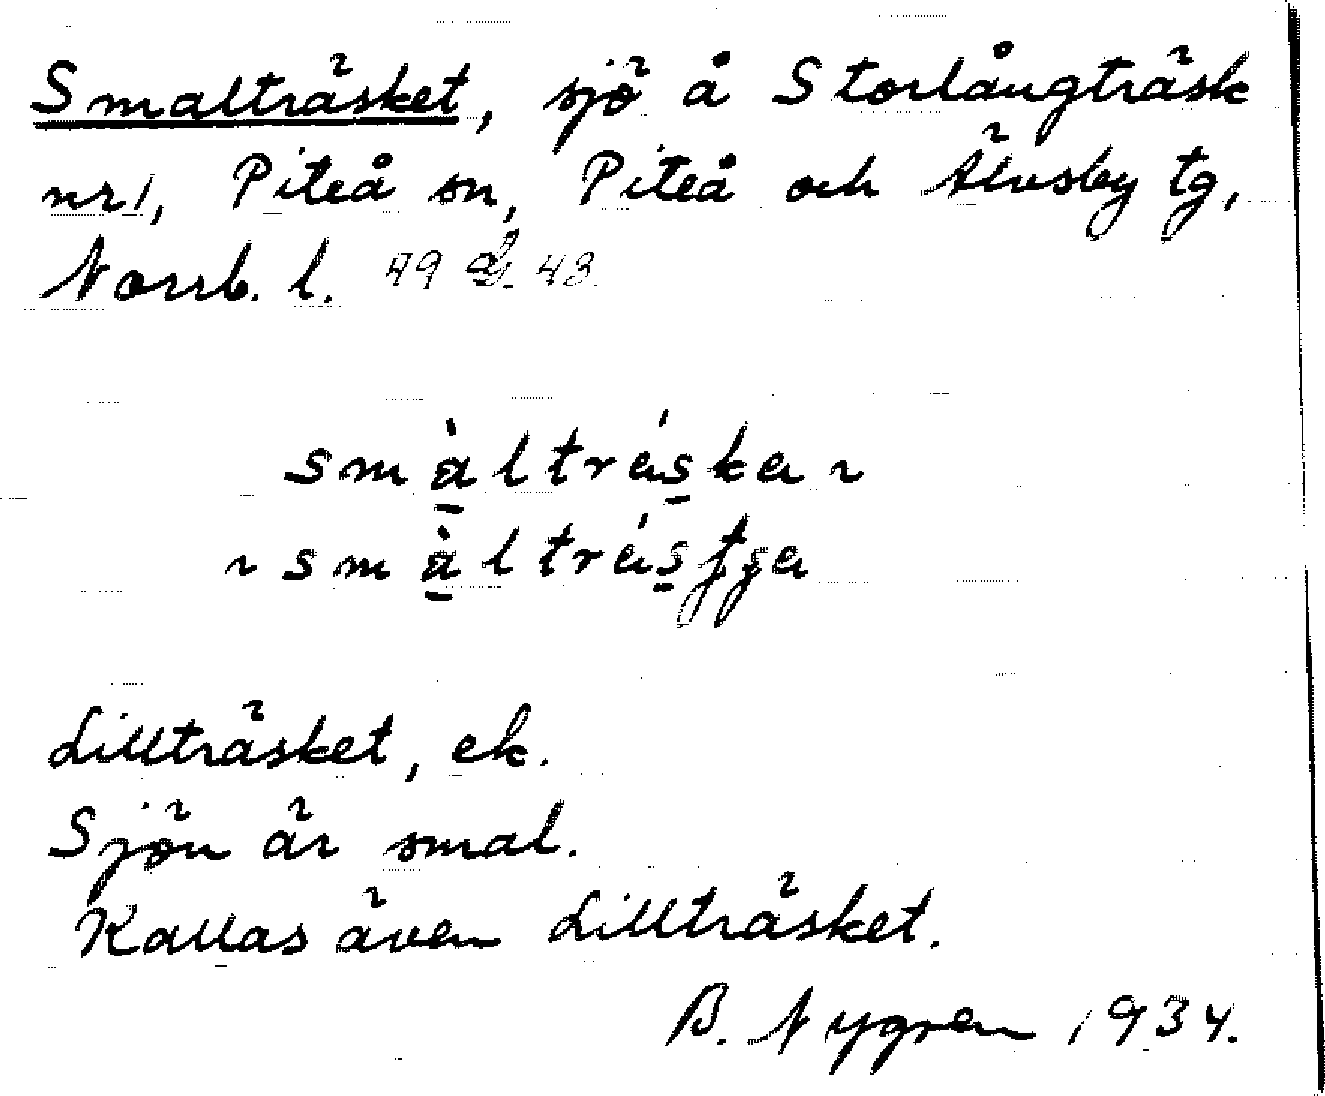 Smalträsket, sjö å Storlångträsk
nr 1, Piteå sn, Piteå och Älvsby tg,
Norrb. l. 43.
smàltráska ~
~ smàltrásʃʒa
Lillträsket, ek.
Sjön är smal.
Kallas även Lillträsket.
B. Nygren 1934.